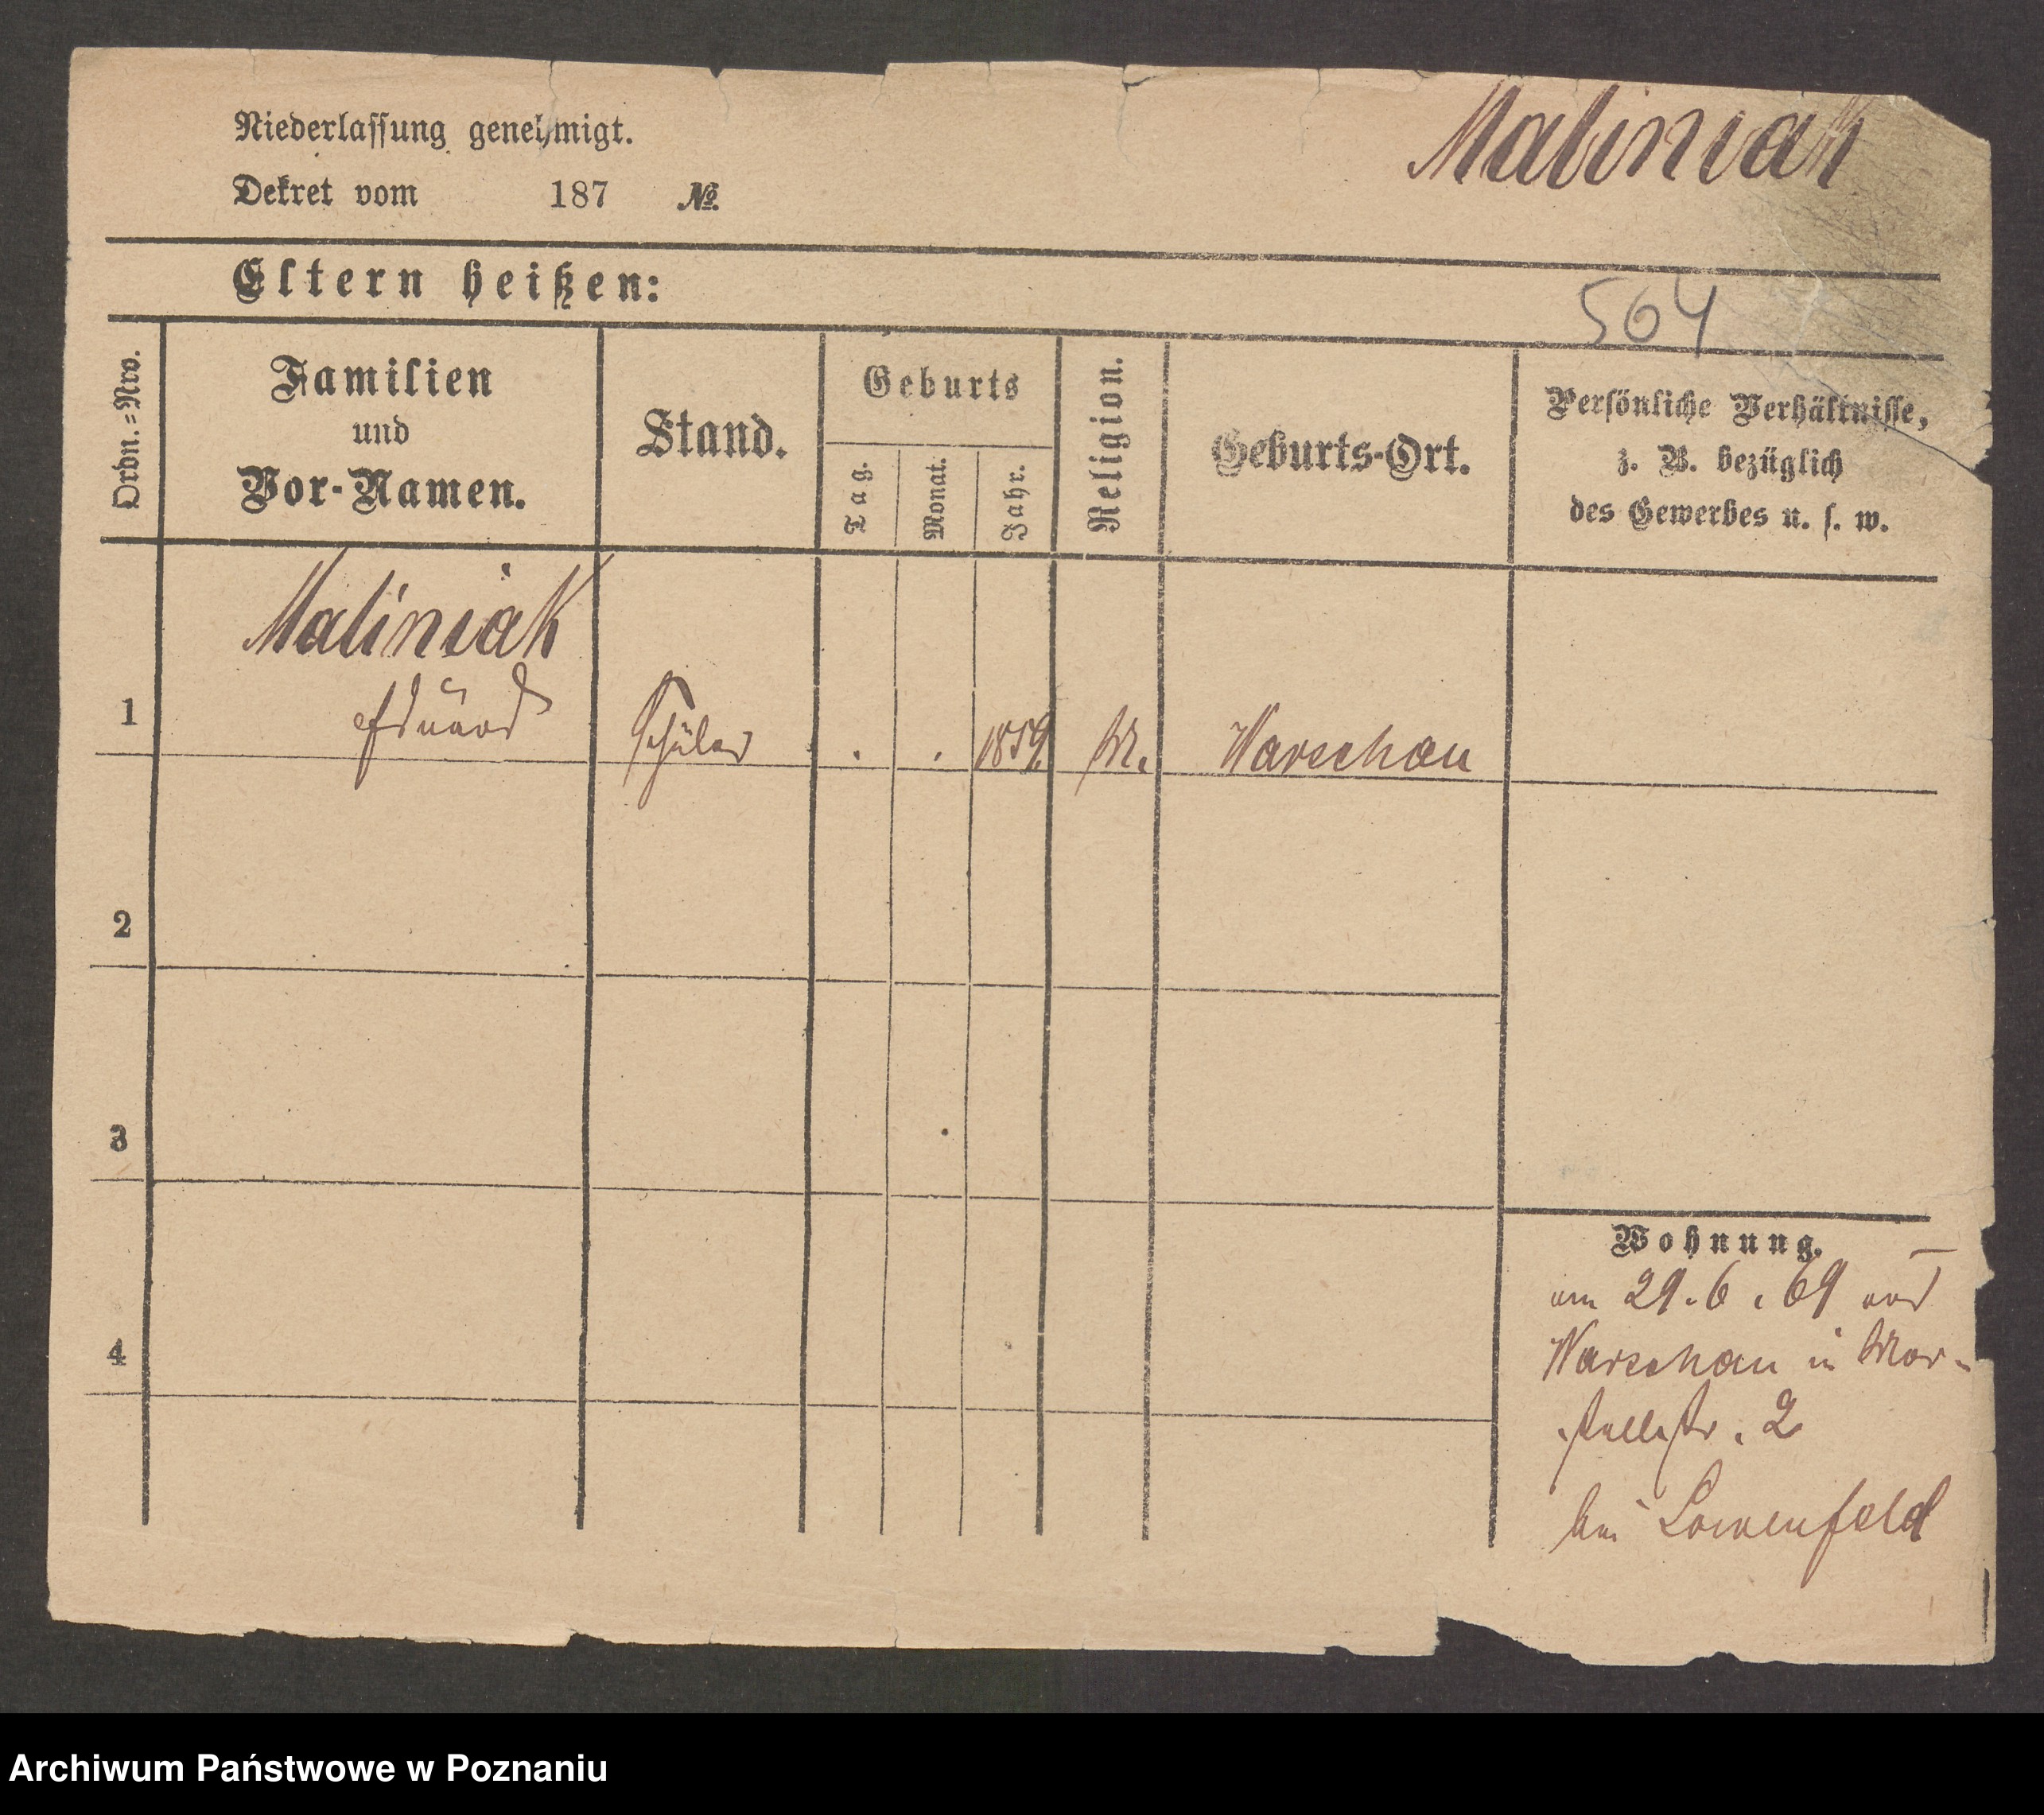 Niederlassung genehmigt.
Maliniak
Dekret vom 187 №.
Eltern heißen:
504
Ordn.=Nro.
Familien
und
Vor-Namen.
Stand.
Geburts
Tag.
Monat.
Jahr.
Religion.
Geburts-Ort.
Persönliche Verhältnisse,
z. B. bezüglich
des Gewerbes u. s. w.
Maliniak
1 Eduard Schüler . . 1859. M. Warschau
2
3
4
Wohnung.
am 29.6.69 aus
Warschau in Mar-
stallstr. 2
bei Löwenfeld
Archiwum Państwowe w Poznaniu